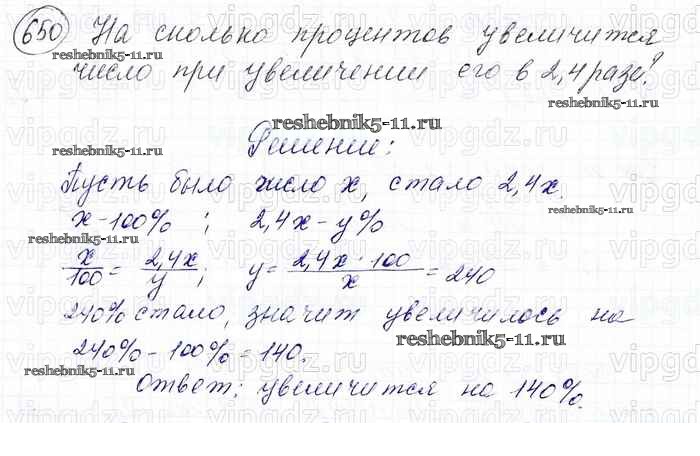 650 На сколько процентов увеличится
reshebnik5-11.ru
число при увеличении его в 2,4 раза?
reshebnik5-11.ru
reshebnik5-11.ru
reshebnik5-11.ru
Решение:
Пусть было число x, стало 2,4x.
reshebnik5-11.ru
x - 100% ; 2,4x - y%
reshebnik5-11.ru
x/100 = 2,4x/y ; y = 2,4x · 100/x = 240
240% стало, значит увеличилось на
reshebnik5-11.ru
240% - 100% = 140.
reshebnik5-11.ru
Ответ: увеличится на 140%.
vipgdz.ru